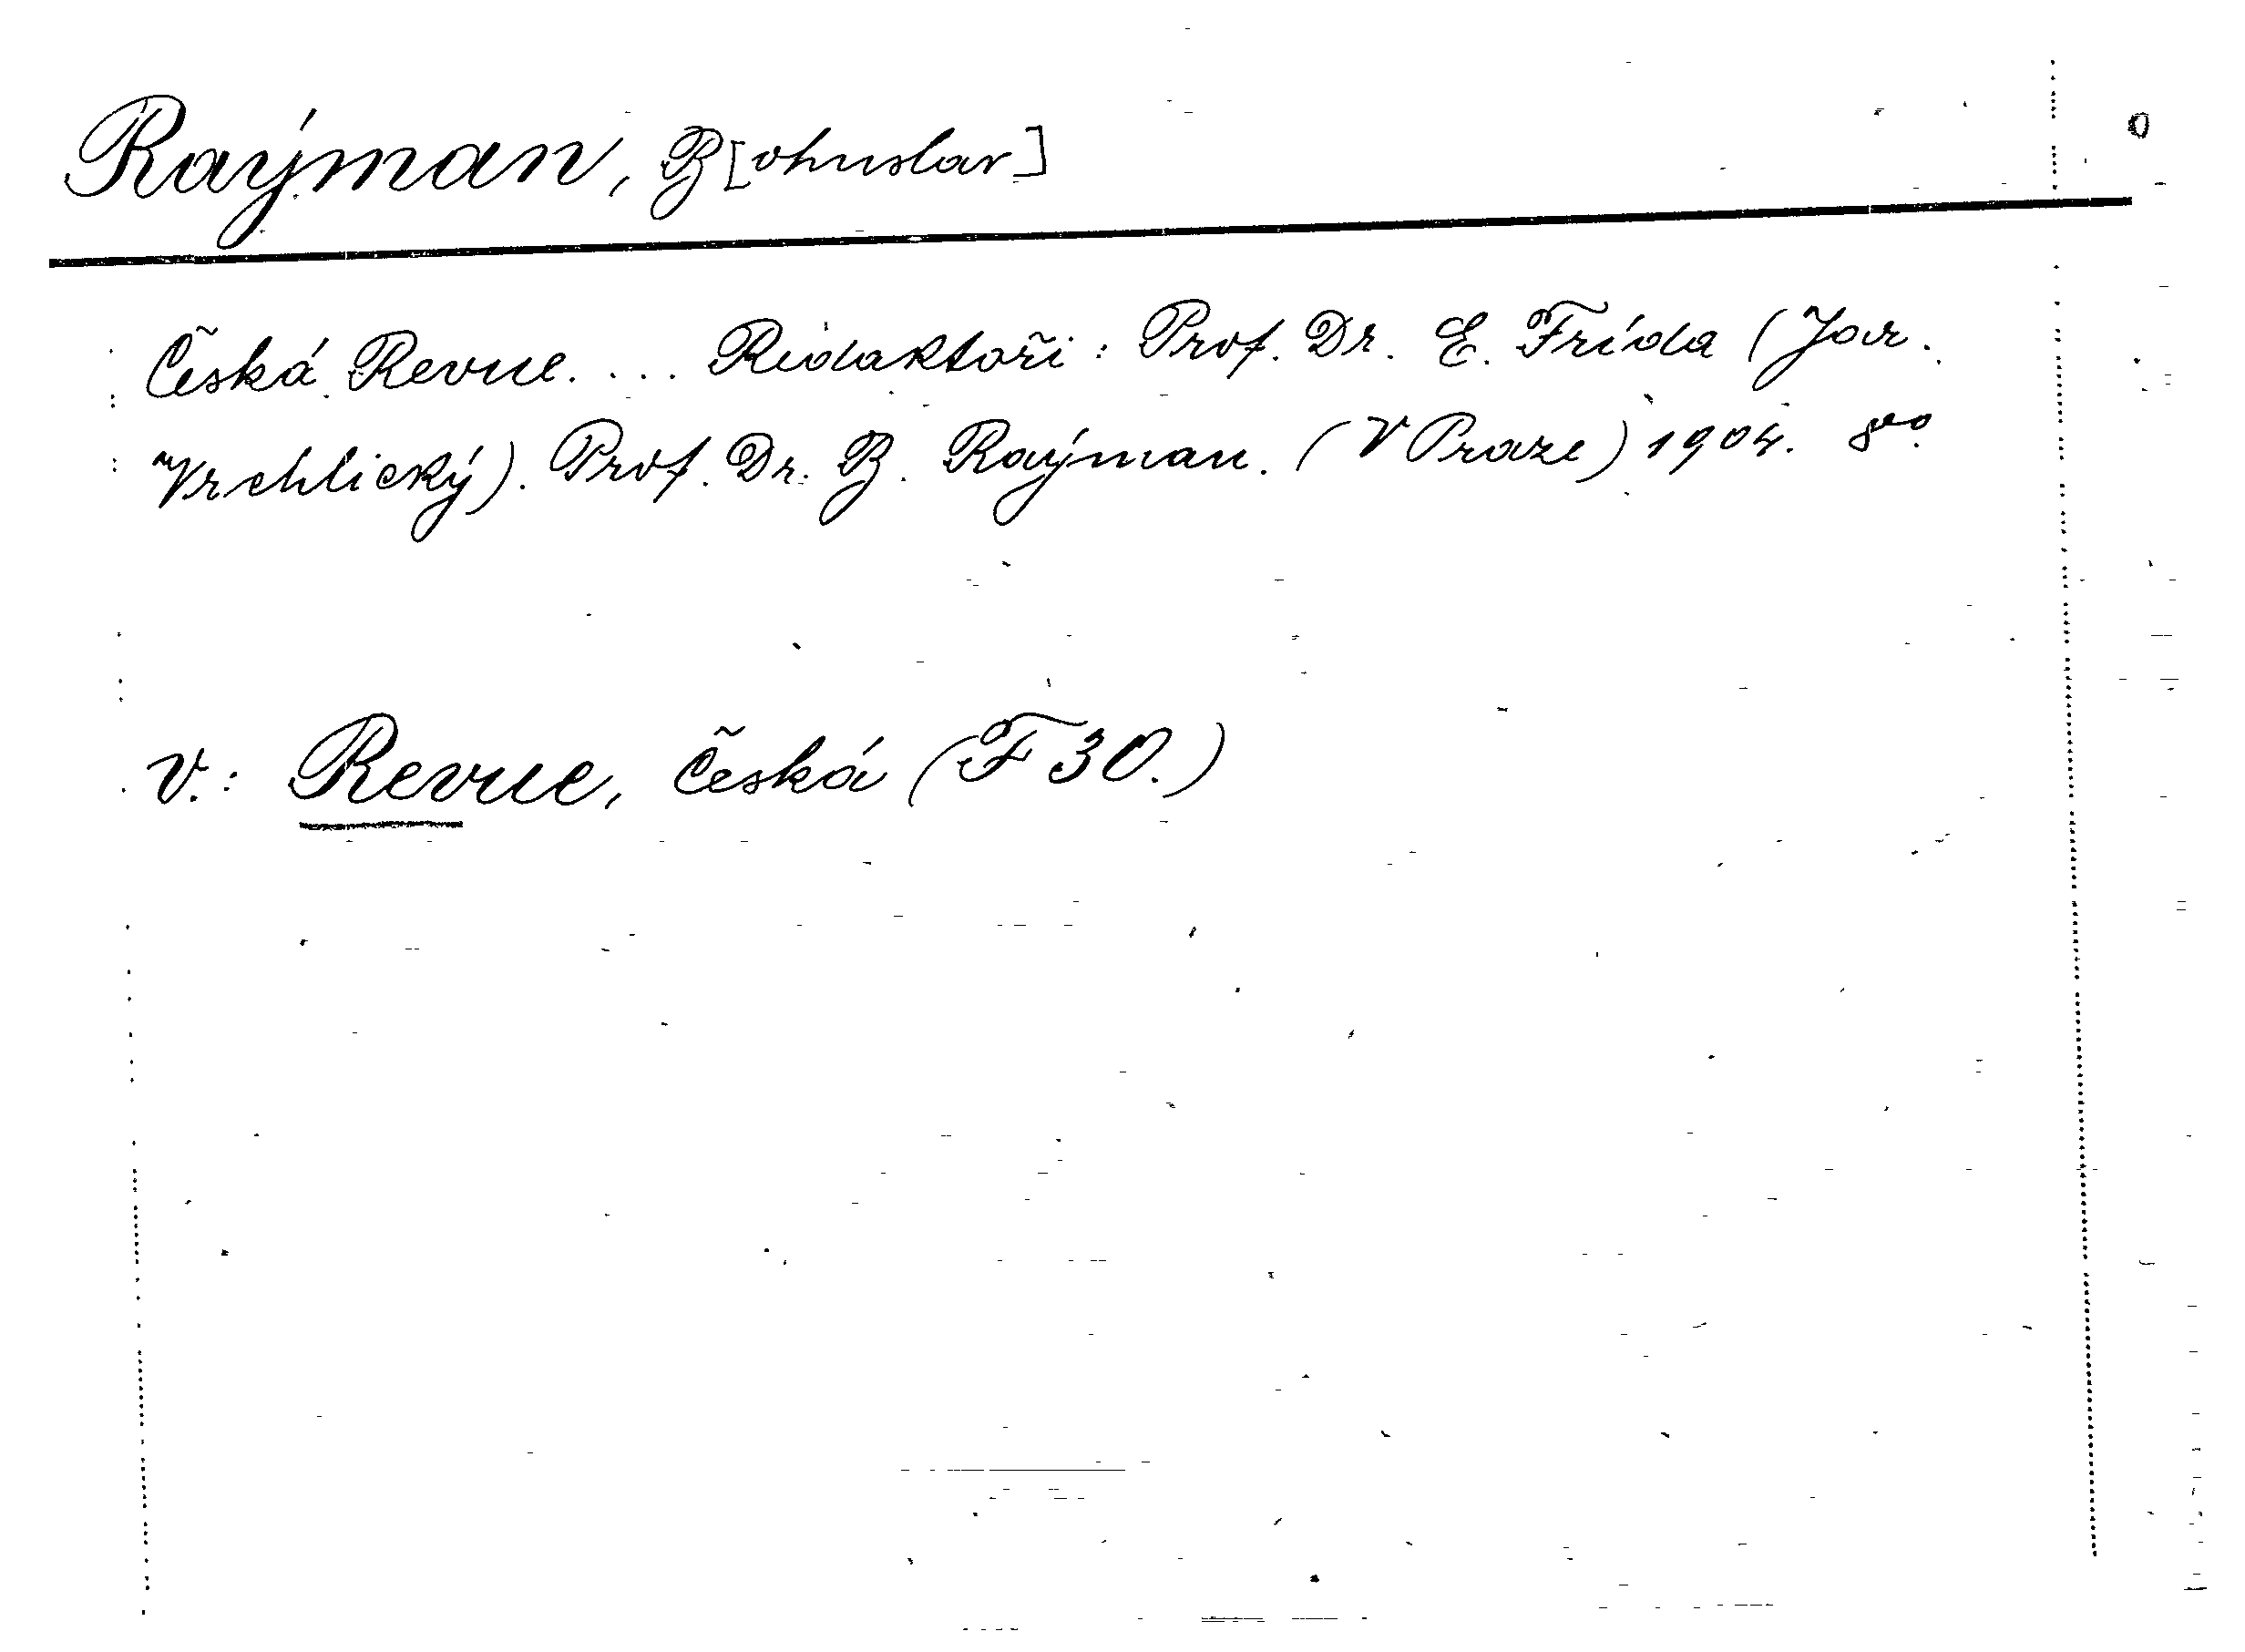 Raýman, B[ohuslav]
0
Česká Revue. ... Redaktoři: Prof. Dr. E. Frída (Jar.
Vrchlický). Prof. Dr. B. Raýman. (V Praze) 1904. 8vo.
v.: Revue, Česká (F 30.)